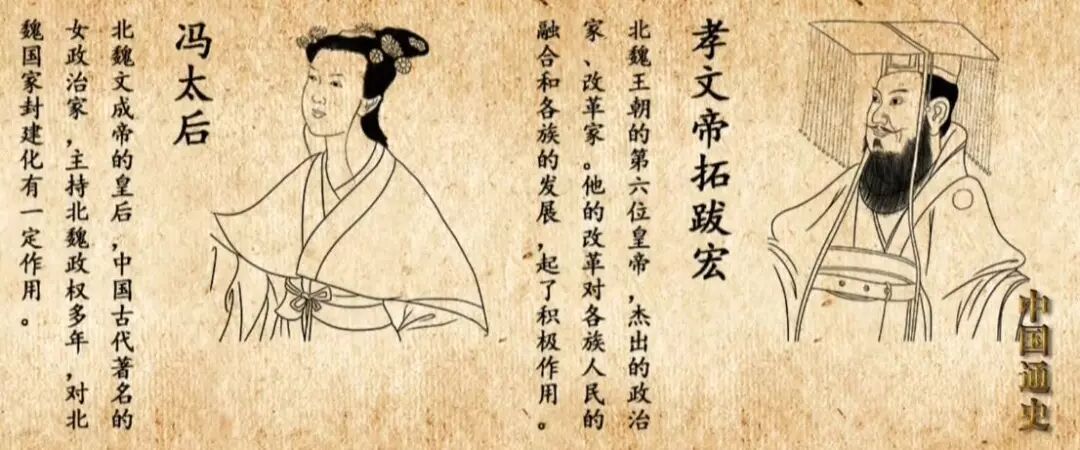 孝文帝拓跋宏
北魏王朝的第六位皇帝，杰出的政治
家、改革家。他的改革对各族人民的
融合和各族的发展，起了积极作用。
冯太后
北魏文成帝的皇后，中国古代著名的
女政治家，主持北魏政权多年，对北
魏国家封建化有一定作用。
中国通史